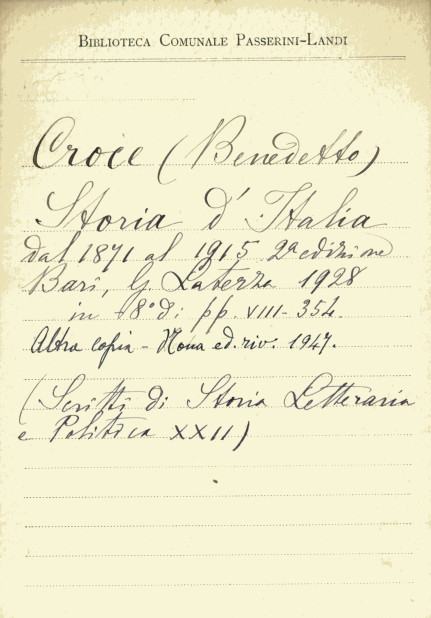 BIBLIOTECA COMUNALE PASSERINI-LANDI
Croce (Benedetto)
Storia d'Italia
dal 1871 al 1915. 2ª edizione
Bari, G. Laterza 1928
in 8° di pp. VIII-354.
Altra copia - Nona ed. riv. 1947.
(Scritti di Storia Letteraria
e Politica XXII)